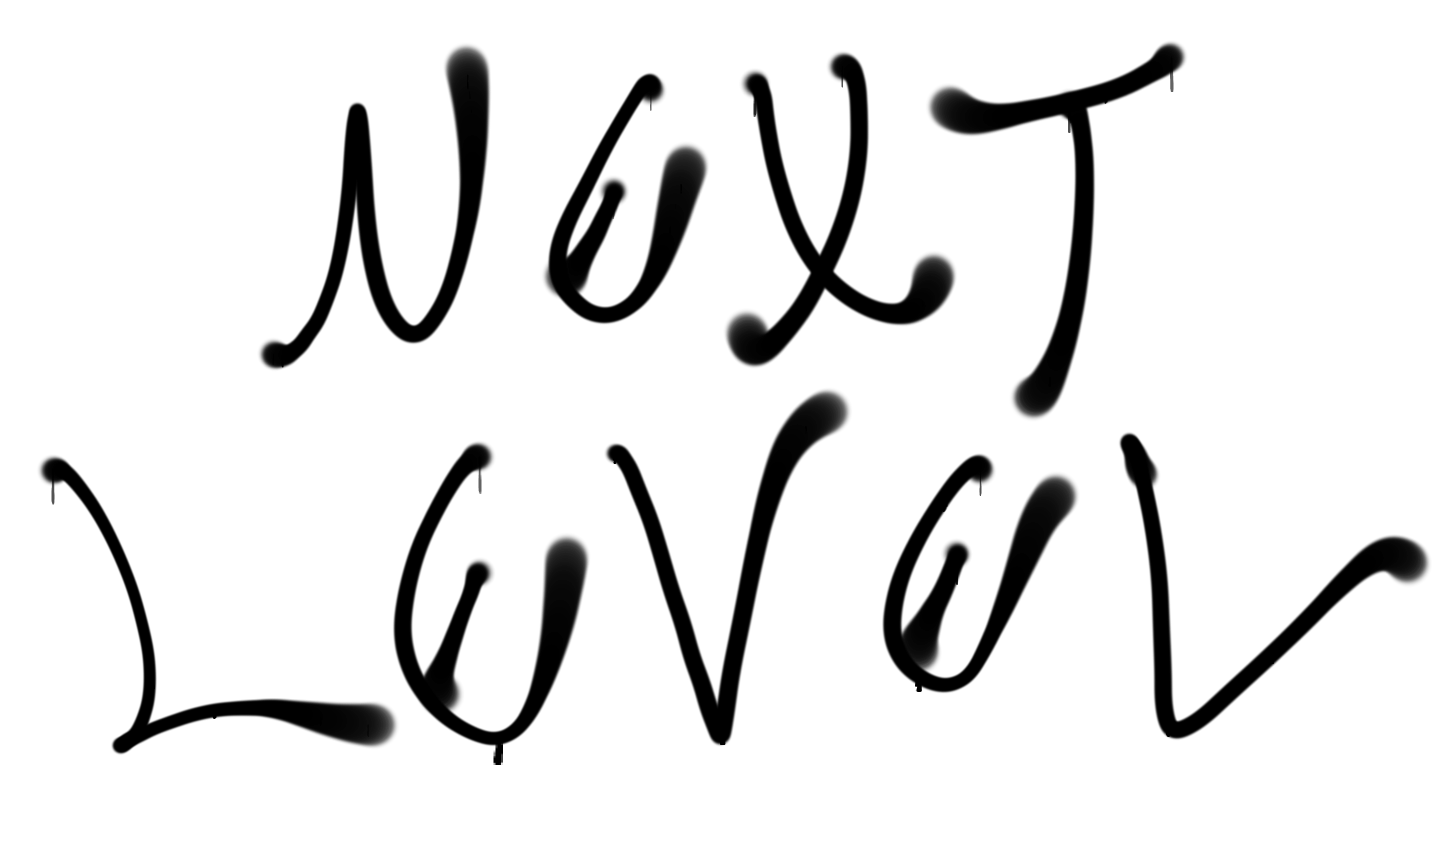 NEXT
LEVEL